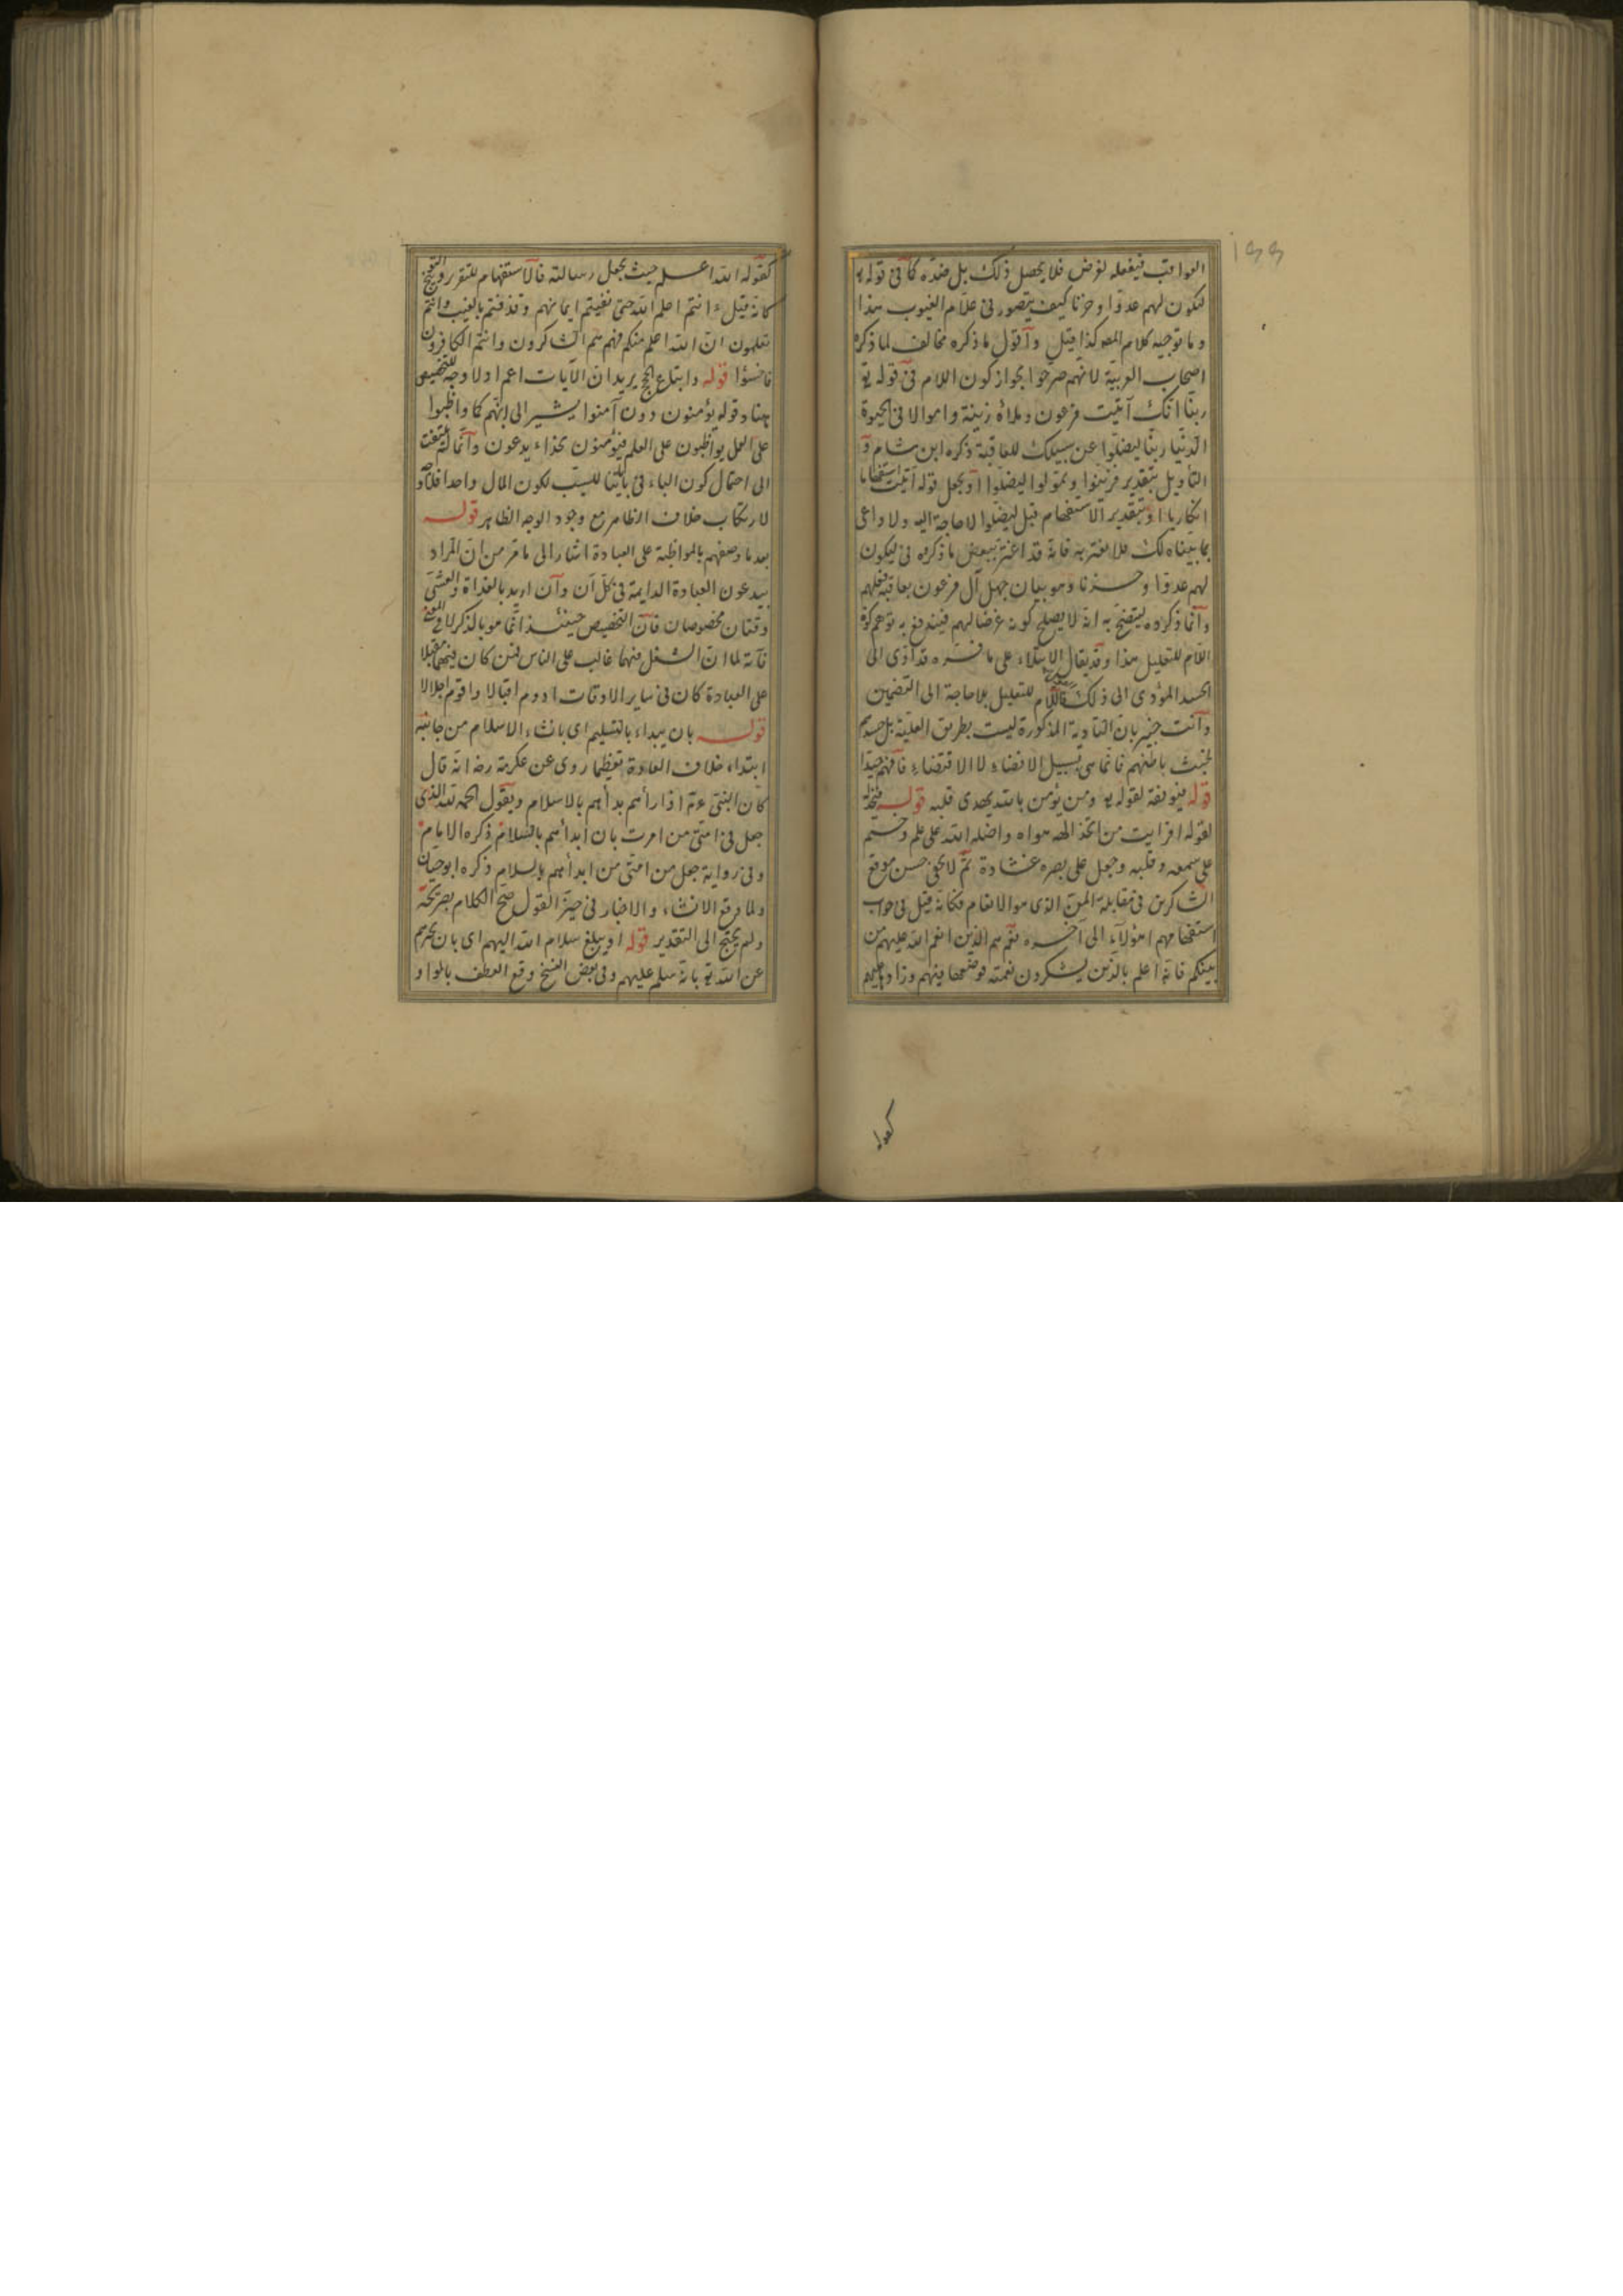 ١٩٩
العواقب فيفعله لغرض فلا يحصل ذلك بل ضده كما فى قوله
ليكون لهم عدوا وحزنا كيف يتصور فى علام الغيوب هذا
وما توجيه كلام المص كذا قيل وأقول ما ذكره مخالف لما ذكره
اصحاب العربية لانهم صرحوا بجواز كون اللام فى قوله تع
ربنا انك آتيت فرعون وملأه زينة واموالا فى الحيوة
الدنيا ربنا ليضلوا عن سبيلك للعاقبة ذكره ابن هشام و
التأويل بتقدير فزينوا وتمولوا ليضلوا او يجعل قوله آتيت استفهاما
انكاريا او بتقدير الاستفهام قبل ليضلوا لا حاجة اليه ولا داعى
بما بيناه لك فلا تغتر به فانه قد اغتر ببعض ما ذكروه فى ليكون
لهم عدوا وحزنا وهو بيان جهل آل فرعون بعاقبة فعلهم
وانما ذكروه ليتضح به انه لا يصلح كونه غرضا لهم فيندفع به توهم كون
اللام للتعليل هذا وقد يقال الابتلاء على ما فسره قد ادى الى
الحسد المؤدى الى ذلك فاللام للتعليل بلا حاجة الى التضمين
وانت خبير بان التأدية المذكورة ليست بطريق العلية بل حسدهم
لخبث باطنهم فانما هى بسبيل الافضاء لا الاقتضاء فافهم جيدا
قوله فيوفقه لقوله تع ومن يؤمن بالله يهدى قلبه قوله فيخذله
لقوله افرايت من اتخذ الهه هواه واضله الله على علم وختم
على سمعه وقلبه وجعل على بصره غشاوة ثم لا يخفى حسن موقع
الشاكرين فى مقابلة المن الذى هو الانعام فكانه قيل فى جواب
استفهامهم اهؤلاء الى آخره نعم هم الذين انعم الله عليهم من
بينكم فانه اعلم بالذين يشكرون نعمته فوضعها فيهم وزاد عليهم
كقوله
كقوله الله اعلم حيث يجعل رسالته فالاستفهام للتقرير والتوبيخ
كانه قيل ءانتم اعلم ام الله حتى نفيتم ايمانهم وقذفتم بالغيب وانتم
تعلمون ان الله اعلم منكم فهم هم الشاكرون وانتم الكافرون
فاخسؤا قوله واتباع الحج يريد ان الآيات اعم اولا وجه للتخصيص
هنا وقوله يؤمنون دون آمنوا يشير الى انهم كما واظبوا
على العمل يواظبون على العلم فيؤمنون بحذاء يدعون وانما لم يلتفت
الى احتمال كون الباء فى بآياتنا للسبب لكون المال واحدا فلا
لارتكاب خلاف الظاهر مع وجود الوجه الظاهر قوله
بعد ما وصفهم بالمواظبة على العبادة اشار الى ما مر من ان المراد
بيدعون العبادة الدايمة فى كل آن وان اريد بالغداة والعشى
وقتان مخصوصان فان التخصيص حينئذ انما هو بالذكر لا فى المعنى
فانه لما ان الشغل فيهما غالب على الناس فمن كان فيهما مقبلا
على العبادة كان فى ساير الاوقات ادوم اقبالا واقوم اجلالا
قوله بان يبداء بالتسليم اى بانشاء الاسلام من جانبه
ابتداء خلاف العادة تعظيما روى عن عكرمة رضه انه قال
كان النبى عم اذا رأهم بدأهم بالاسلام ويقول الحمد لله الذى
جعل فى امتى من امرت بان ابدأهم بالسلام ذكره الامام
وفى رواية جعل من امتى من ابدأهم بالسلام ذكره ابو حيان
ولما وقع الانشاء والاخبار فى حيز القول صح الكلام بصريحه
ولم يحتج الى التقدير قوله او يبلغ سلام الله اليهم اى بان يخبرهم
عن الله تع بانه سلم عليهم وفى بعض النسخ وقع العطف بالواو